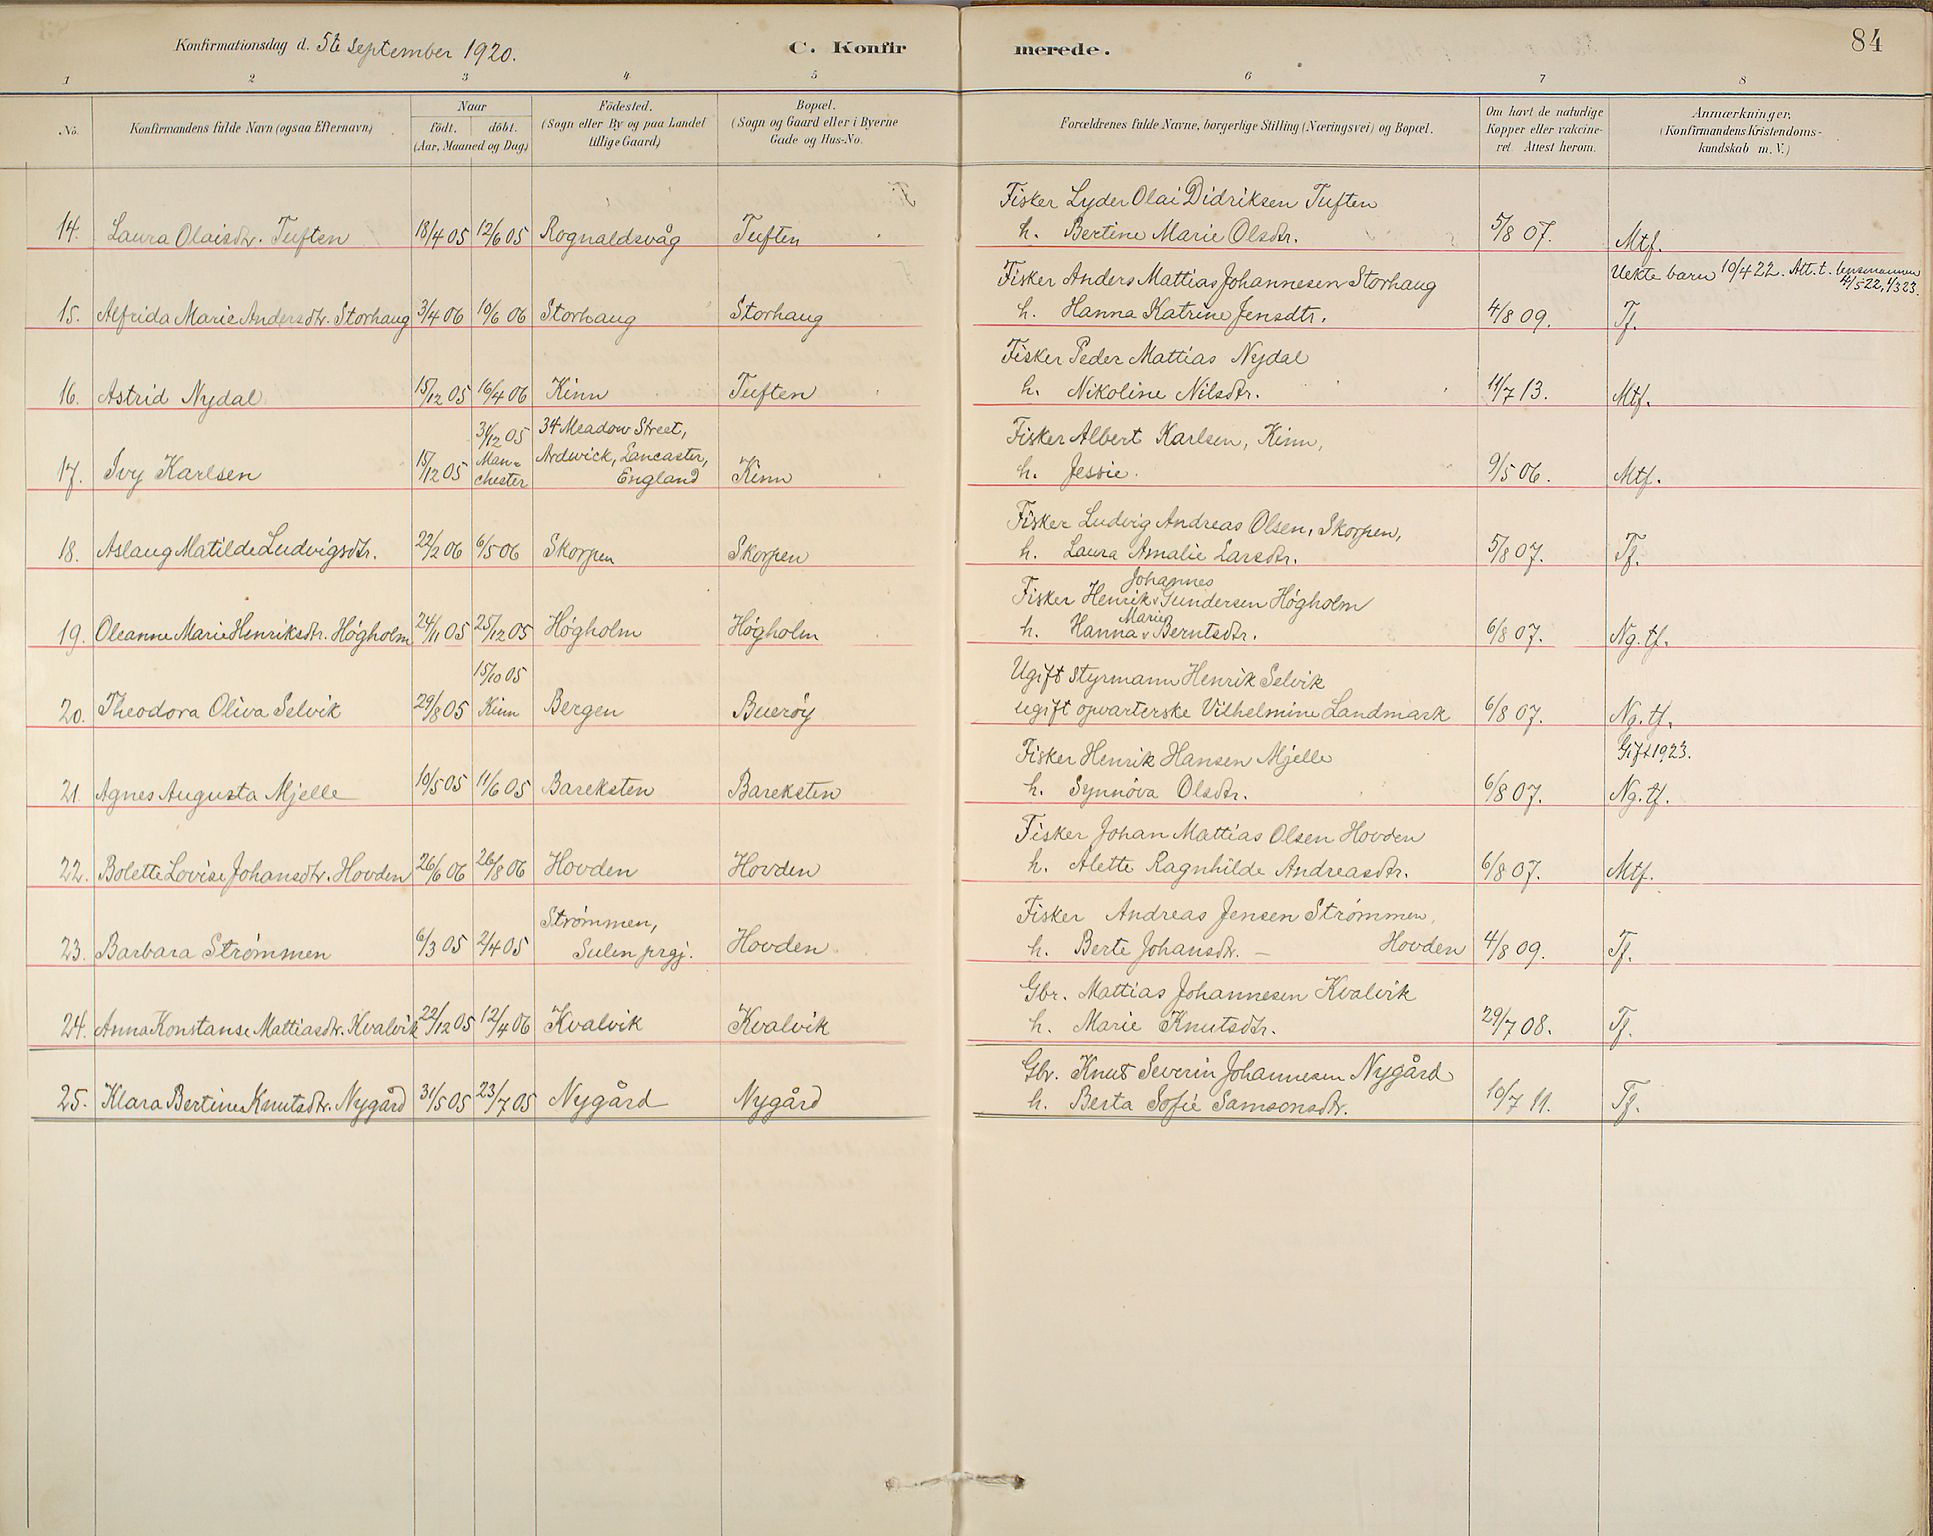 Konfirmationsdag d. 5te september 1920.
C. Konfirmerede.
84
1 2 3 4 5 6 7 8
No.
Konfirmandens fulde Navn (ogsaa Efternavn)
Naar
födt. döbt.
(Aar, Maaned og Dag)
Födested.
(Sogn eller By og paa Landet
tillige Gaard)
Bopæl.
(Sogn og Gaard eller i Byerne
Gade og Hus-No.
Forældrenes fulde Navne, borgerlige Stilling (Næringsvei) og Bopæl.
Om havt de naturlige
Kopper eller vakcine-
ret. Attest herom.
Anmærkninger,
(Konfirmandens Kristendoms-
kundskab m. V.)
Fisker Lyder Olai Didriksen Tuften
14. Laura Olaisdtr. Tuften 18/4 05 12/6 05 Rognaldsvåg Tuften h. Bertine Marie Olsdtr. 5/8 07. Mtf.
Fisker Anders Mattias Johannesen Storhaug Uekte barn 10/4 22. Att. t. lensmannen
4/5 22, 1/3 23.
15. Alfrida Marie Andersdtr. Storhaug 3/4 06 10/6 06 Storhaug Storhaug h. Hanna Katrine Jensdtr. 4/8 09. Tf.
Fisker Peder Mattias Nydal
16. Astrid Nydal 15/12 05 16/4 06 Kinn Tuften h. Nikoline Nilsdtr. 11/7 13. Mtf.
31/12 05 34 Meadow Street, Fisker Albert Karlsen, Kinn,
Man- Ardwick, Lancaster,
17. Ivy Karlsen 15/12 05 chester England Kinn h. Jessie. 9/5 06. Mtf.
Fisker Ludvig Andreas Olsen, Skorpen,
18. Aslaug Matilde Ludvigsdtr. 22/2 06 6/5 06 Skorpen Skorpen h. Laura Amalie Larsdtr. 5/8 07. Tf.
Johannes
Fisker Henrik v Gundersen Högholm
Marie
19. Oleanne Marie Henriksdtr. Högholm 24/11 05 25/12 05 Högholm Högholm h. Hanna v Berntsdtr. 6/8 07. Ng. tf.
15/10 05 Ugift styrmann Henrik Selvik
20. Theodora Oliva Selvik 29/8 05 Kinn Bergen Bueröy ugift opvarterske Vilhelmine Landmark 6/8 07. Ng. tf.
Fisker Henrik Hansen Mjelle Gift 1923.
21. Agnes Augusta Mjelle 10/5 05 11/6 05 Bareksten Bareksten h. Synnöva Olsdtr. 6/8 07. Ng. tf.
Fisker Johan Mattias Olsen Hovden
22. Bolette Lovise Johansdtr. Hovden 26/6 06 26/8 06 Hovden Hovden h. Alette Ragnhilde Andreasdtr. 6/8 07. Mtf.
Strömmen, Fisker Andreas Jensen Strömmen,
23. Barbara Strömmen 6/3 05 2/4 05 Sulen prgj. Hovden h. Berte Johansdtr. — Hovden 4/8 09. Tf.
Gbr. Mattias Johannesen Kvalvik
24. Anna Konstanse Mattiasdtr. Kvalvik 22/12 05 12/4 06 Kvalvik Kvalvik h. Marie Knutsdtr. 29/7 08. Tf.
Gbr. Knut Severin Johannesen Nygård
25. Klara Bertine Knutsdtr. Nygård 31/5 05 23/7 05 Nygård Nygård h. Berta Sofie Samsonsdtr. 10/7 11. Tf.